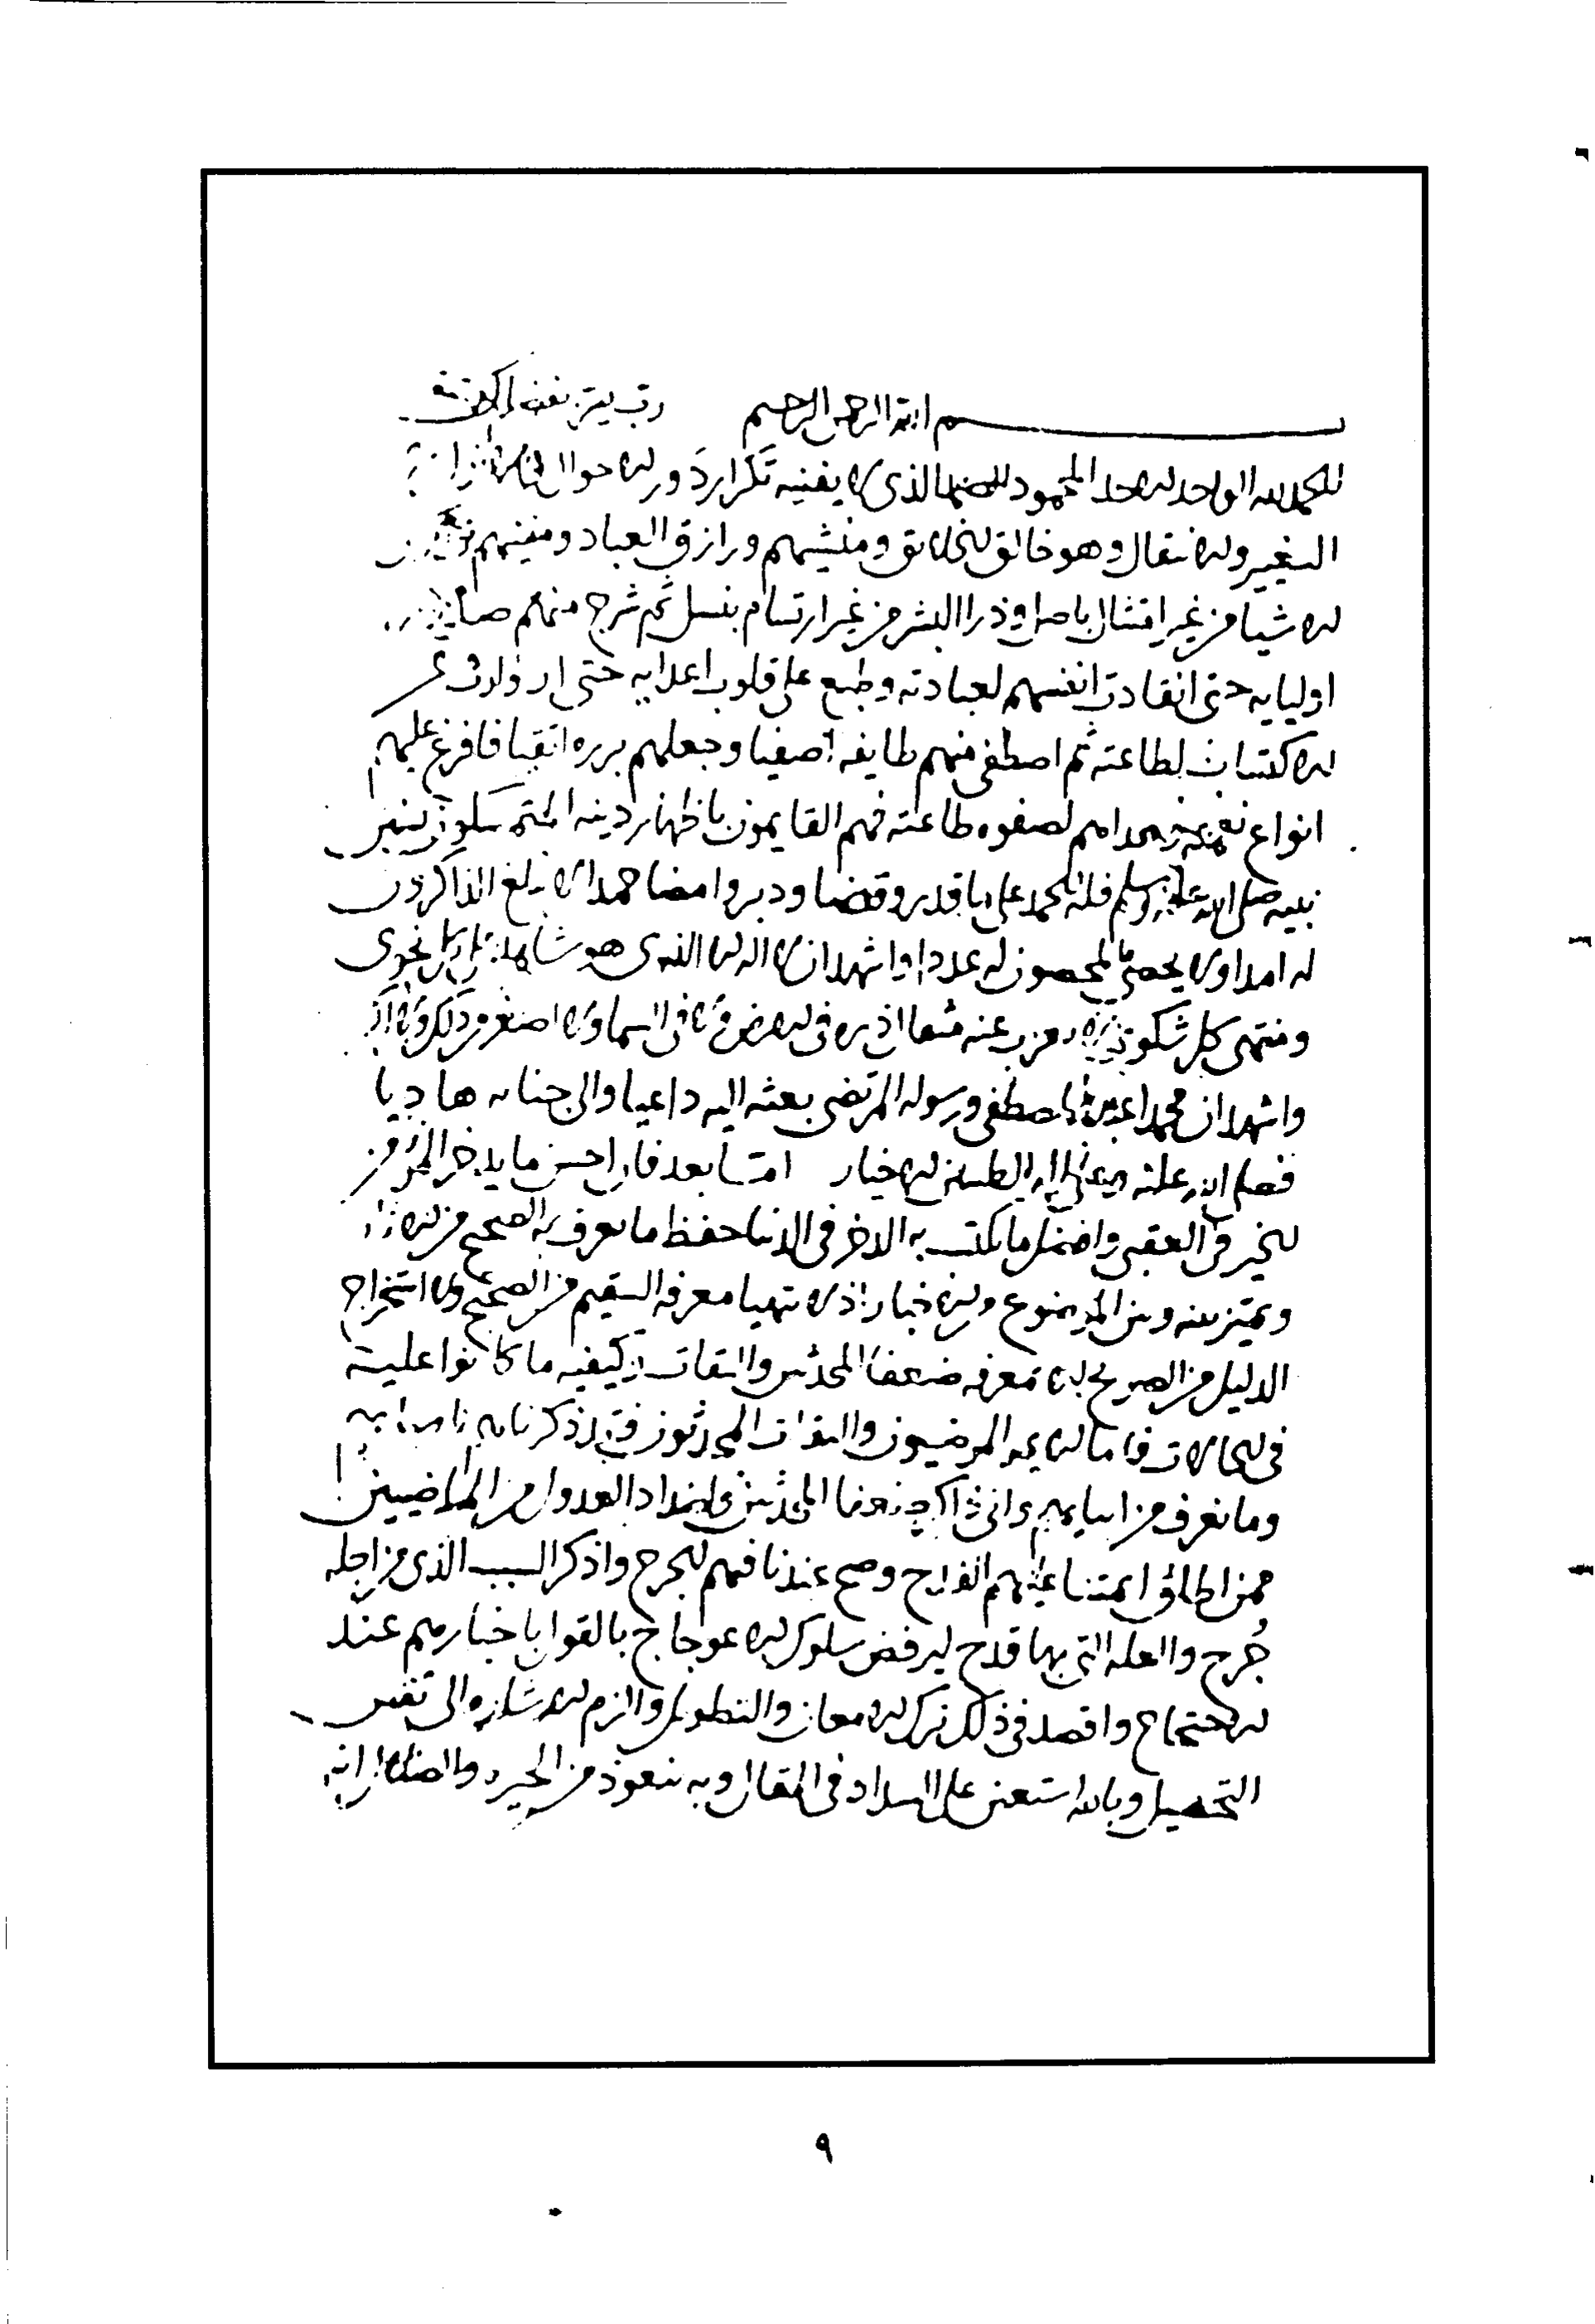 بسم الله الرحمن الرحيم رب يسر
الحمد لله الواحد الاحد المحمود الصمد الذي لا يفنيه تكرار دور الاحوال
التغيير والانتقال وهو خالق الخلائق ومنشيهم ورازق العباد ومفنيهم
الاشيا من غير امتثال باصل وذرا البشر من غير ارتسام بنسل ثم شرح منهم
اوليايه حتى انقادت انفسهم لعبادته وطبع على قلوب اعدايه حتى
الاكتساب لطاعته ثم اصطفى منهم طايفه اصفيا وجعلهم برره اتقيا فافرغ عليهم
انواع نعمه وهداهم لصفوه طاعته فهم القايمون باظهار دينه المتمسكون بسنن
نبيه صلى الله عليه وسلم فله الحمد على ما قدر وقضا ودبر وامضا حمدا لا يبلغ الذاكرون
له امدا ولا يحصي المحصون له عددا واشهد ان لا اله الا الذي هو شاهد كل نجوى
ومنتهى كل شكوى لا يعزب عنه مثقال ذره في الارض ولا في السما ولا اصغر من ذلك ولا
واشهد ان محمدا عبده المصطفى ورسوله المرتضى بعثه اليه داعيا والى جنانه هاديا
فصلى الله عليه وعلى اله الطيبين الاخيار اما بعد فان احسن ما يدخر المرء من
الخير في العقبى وافضل ما يكتسب به الذخر في الدنيا حفظ ما يعرف به الصحيح من الاثار
ويميز بينه وبين الموضوع من الاخبار اذ لا يتهيا معرفه السقيم من الصحيح ولا استخراج
الدليل من الصريح الا بمعرفه ضعفا المحدثين والثقات وكيفيه ما كانوا عليه
في الحالات فاما الايمه المرضيون والثقات المحدثون فقد ذكرناهم
وما نعرف من انبايهم واني ذاكر ضعفا المحدثين واضداد العدول من الماضيين
ممن اطلق ايمتنا عليهم القدح وصح عندنا فيهم الجرح واذكر السبب الذي من اجله
جُرح والعله التي بها قدح ليرفض سلوك الاعوجاج بالقول باخبارهم عند
الاحتجاج واقصد في ذلك ترك الامعان والتطويل والزم الاشاره الى نفس
التحصيل وبالله استعين على السداد في المقال وبه نتعوذ من الحيره والضلال انه
٩